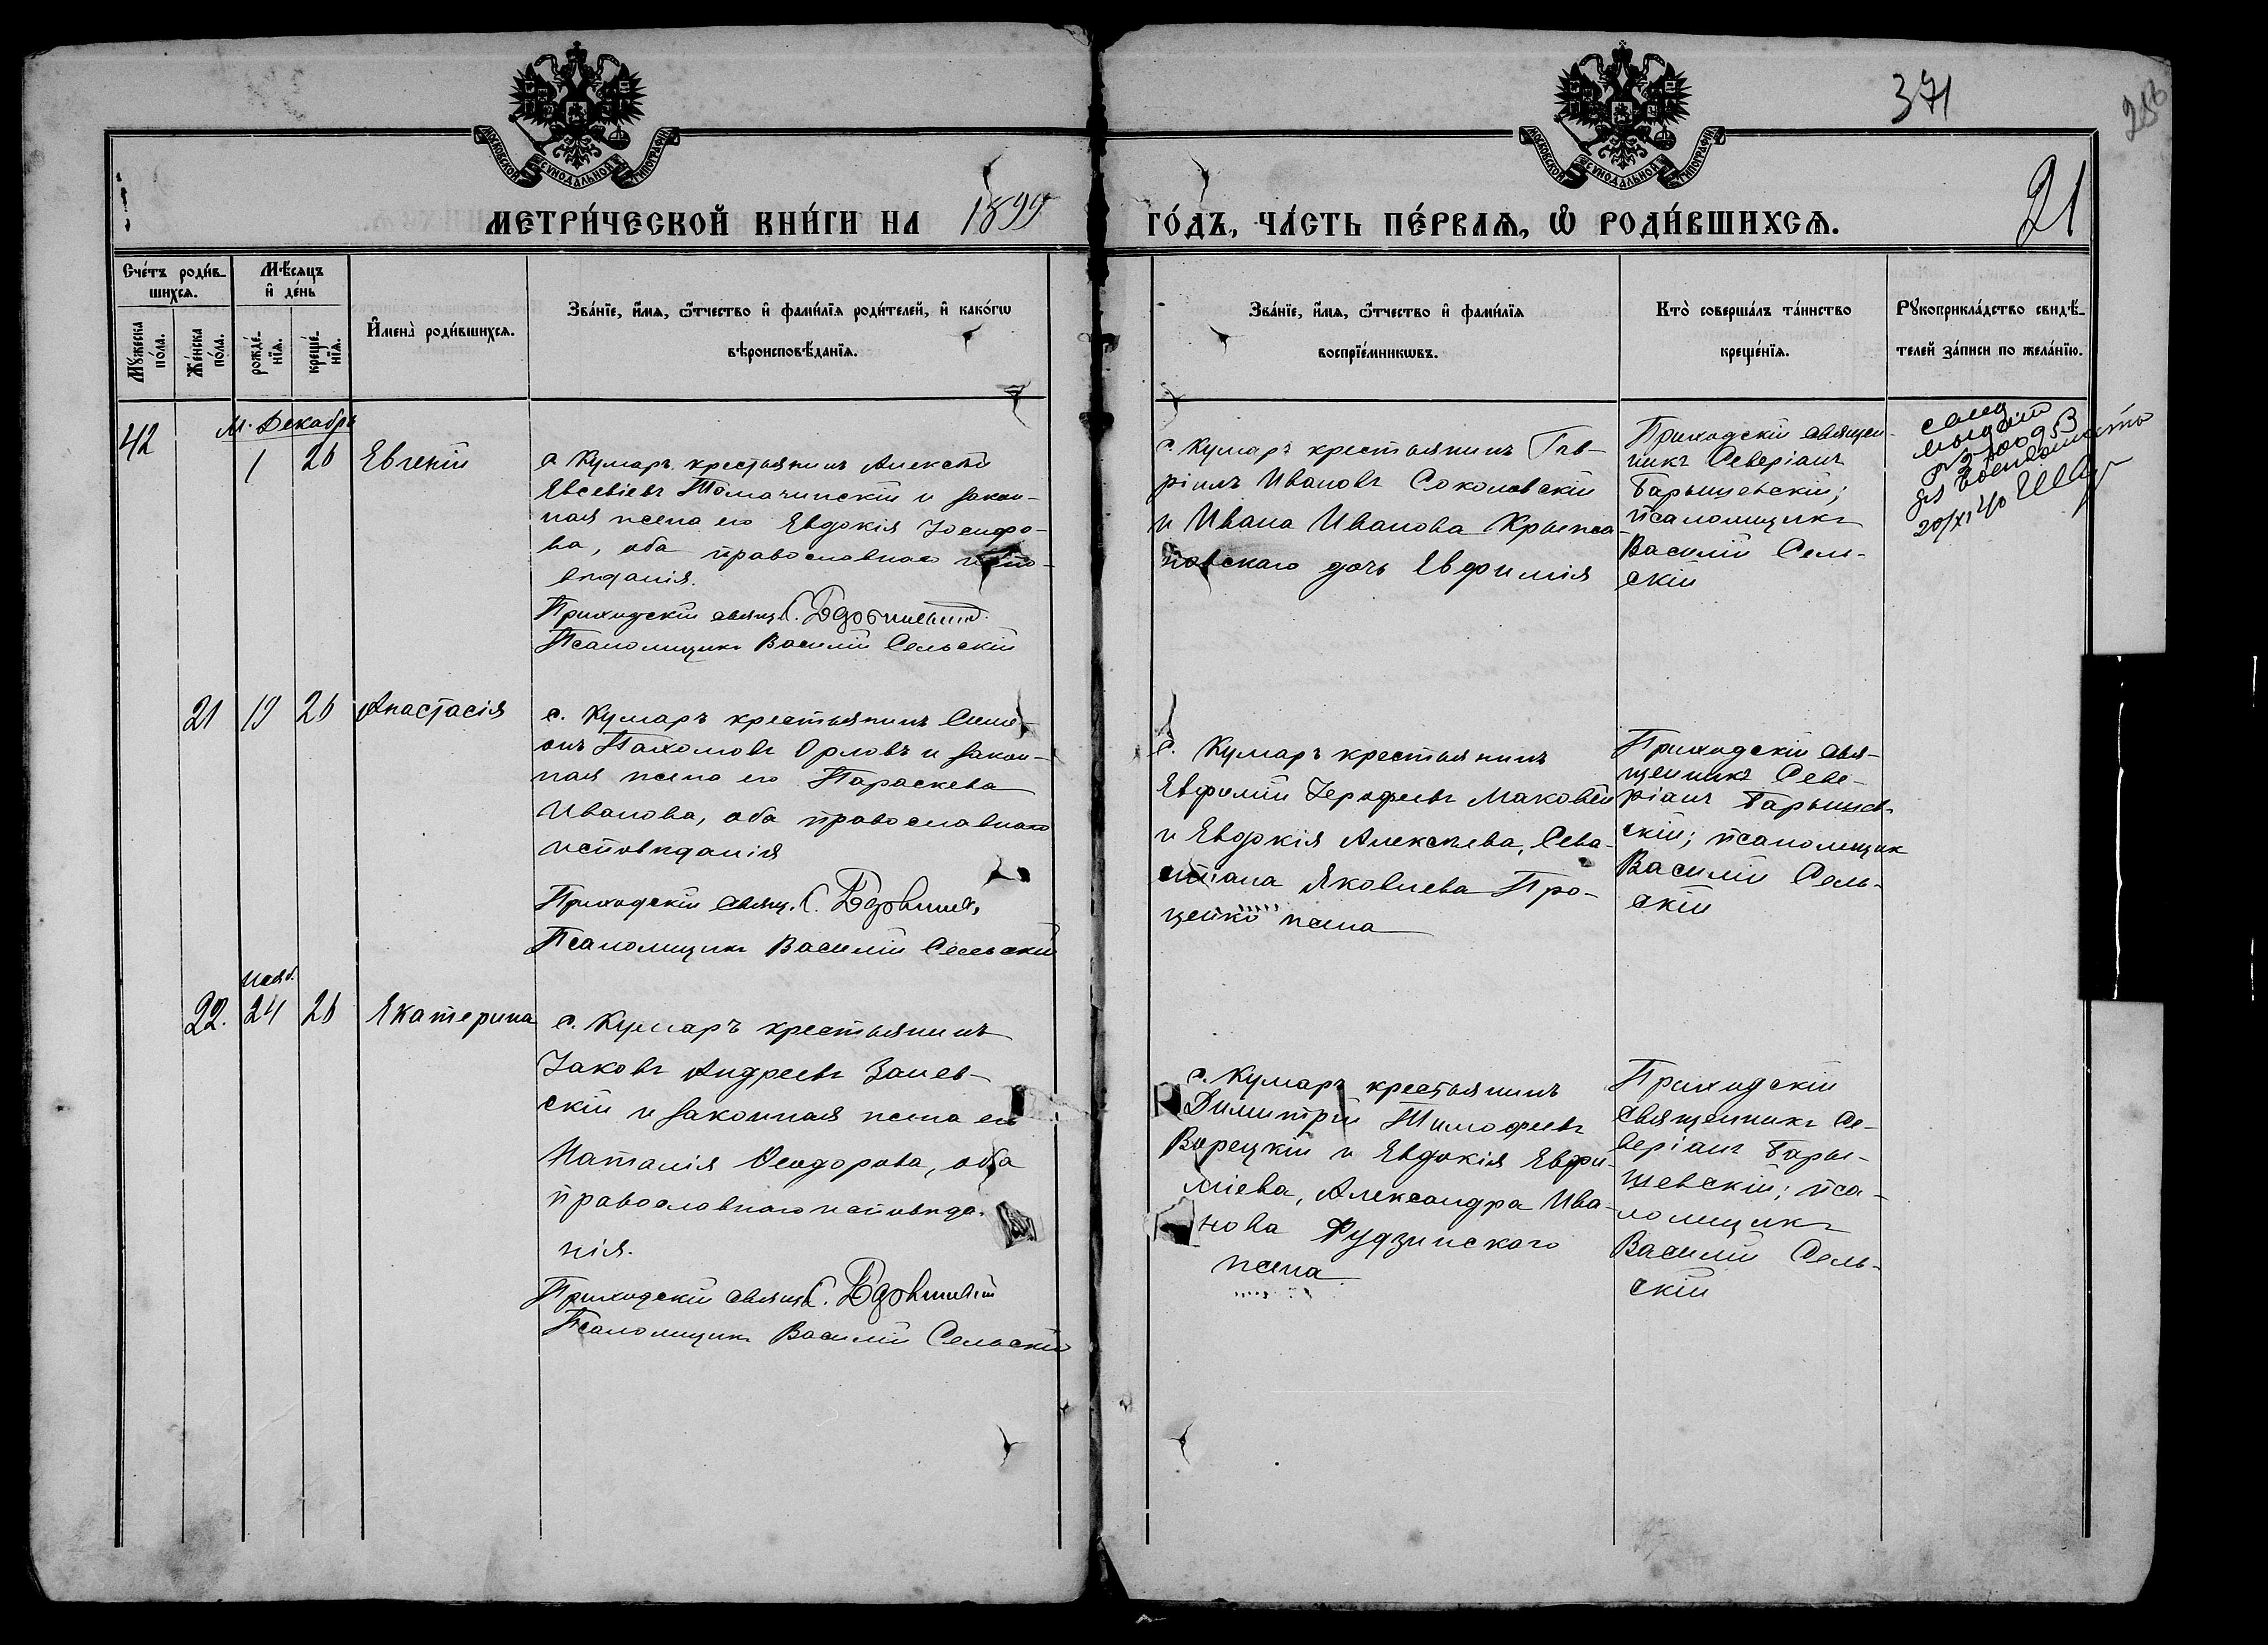 371
256
21
МОСКОВСКОЙ СѴНОДАЛЬНОЙ ТИПОГРАФІИ
МОСКОВСКОЙ СѴНОДАЛЬНОЙ ТИПОГРАФІИ
МЕТРИ́ЧЕСКОЙ КНИ́ГИ НА 1899 ГО́ДЪ, ЧА́СТЬ ПЕ́РВАѦ, Ѽ РОДИ́ВШИХСѦ.
Сче́тъ роди́в-
шихсѧ.
Мꙋ́жеска по́ла.
Же́нска по́ла.
Мѣ́сѧцъ
и҆ де́нь
рожде́-
нїѧ.
креще́-
нїѧ.
И҆мена̀ роди́вшихсѧ.
Зва́нїе, и҆́мѧ, ѻ҆́тчество и҆ фами́лїѧ роди́телей, и҆ како́гѡ
вѣроисповѣ́данїѧ.
Зва́нїе, и҆́мѧ, ѻ҆́тчество и҆ фами́лїѧ
воспрїе́мникѡвъ.
Кто̀ соверша́лъ та́инство
креще́нїѧ.
Рꙋкоприкла́дство свидѣ́-
телей за́писи по жела́нїю.
М. Декабрь
42 1 26 Евгеній
с Кумаръ крестьянинъ Алексѣй
Евсевіевъ Томачинскій и закон-
ная жена его Евдокія Іосифо-
ва, оба православнаго испо-
вѣданія.
Приходскій свящ. С.
Псаломщикъ Василій Сельскій
с. Кумаръ крестьянинъ Гав-
ріилъ Ивановъ Соколовскій
и Ивана Иванова Крыжа-
новскаго дочь Евфимія
Приходскій священ-
никъ Северіанъ
Барышевскій;
псаломщикъ
Василій Сель-
скій
20/XI 40
21 19 26 Анастасія
с. Кумаръ крестьянинъ Симе-
онъ Пахомовъ Орловъ и закон-
ная жена его Параскева
Иванова, оба православнаго
исповѣданія
Приходскій свящ. С.
Псаломщикъ Василій Сельскій
с. Кумаръ крестьянинъ
Евфимій Іерофеевъ Маковѣй
и Евдокія Алексѣева, Сева-
стіана Яковлева Про-
ценко жена
Приходскій свя-
щенникъ Севе-
ріанъ Барышев-
скій; псаломщик
Василій Сель-
скій
Нояб.
22. 24 26 Екатерина
с. Кумаръ крестьянинъ
Іаковъ Андреевъ Заиев-
скій и законная жена его
Наталія Ѳеодорова, оба
православнаго исповѣда-
нія.
Приходскій свящ. С.
Псаломщикъ Василій Сельскій
с. Кумаръ крестьянинъ
Димитрій Тимофеевъ
Ворецкій и Евдокія Евфи-
міева, Александра Ива-
нова Рудзинскаго
жена
Приходскій
священникъ Се-
веріанъ Бары-
шевскій; пса-
ломщикъ
Василій Сель-
скій